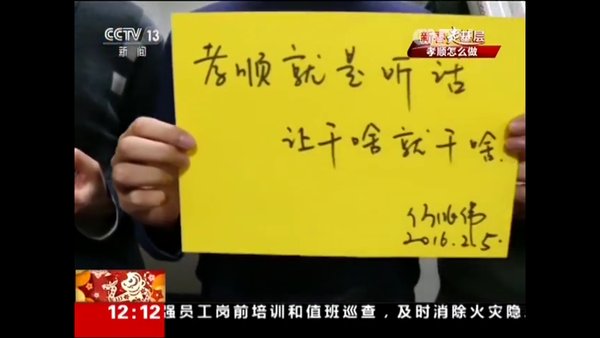 CCTV 13
新闻
新春走基层
孝顺怎么做
孝顺就是听话
让干啥就干啥.
2016.2.5.
12:12
强员工岗前培训和值班巡查，及时消除火灾隐